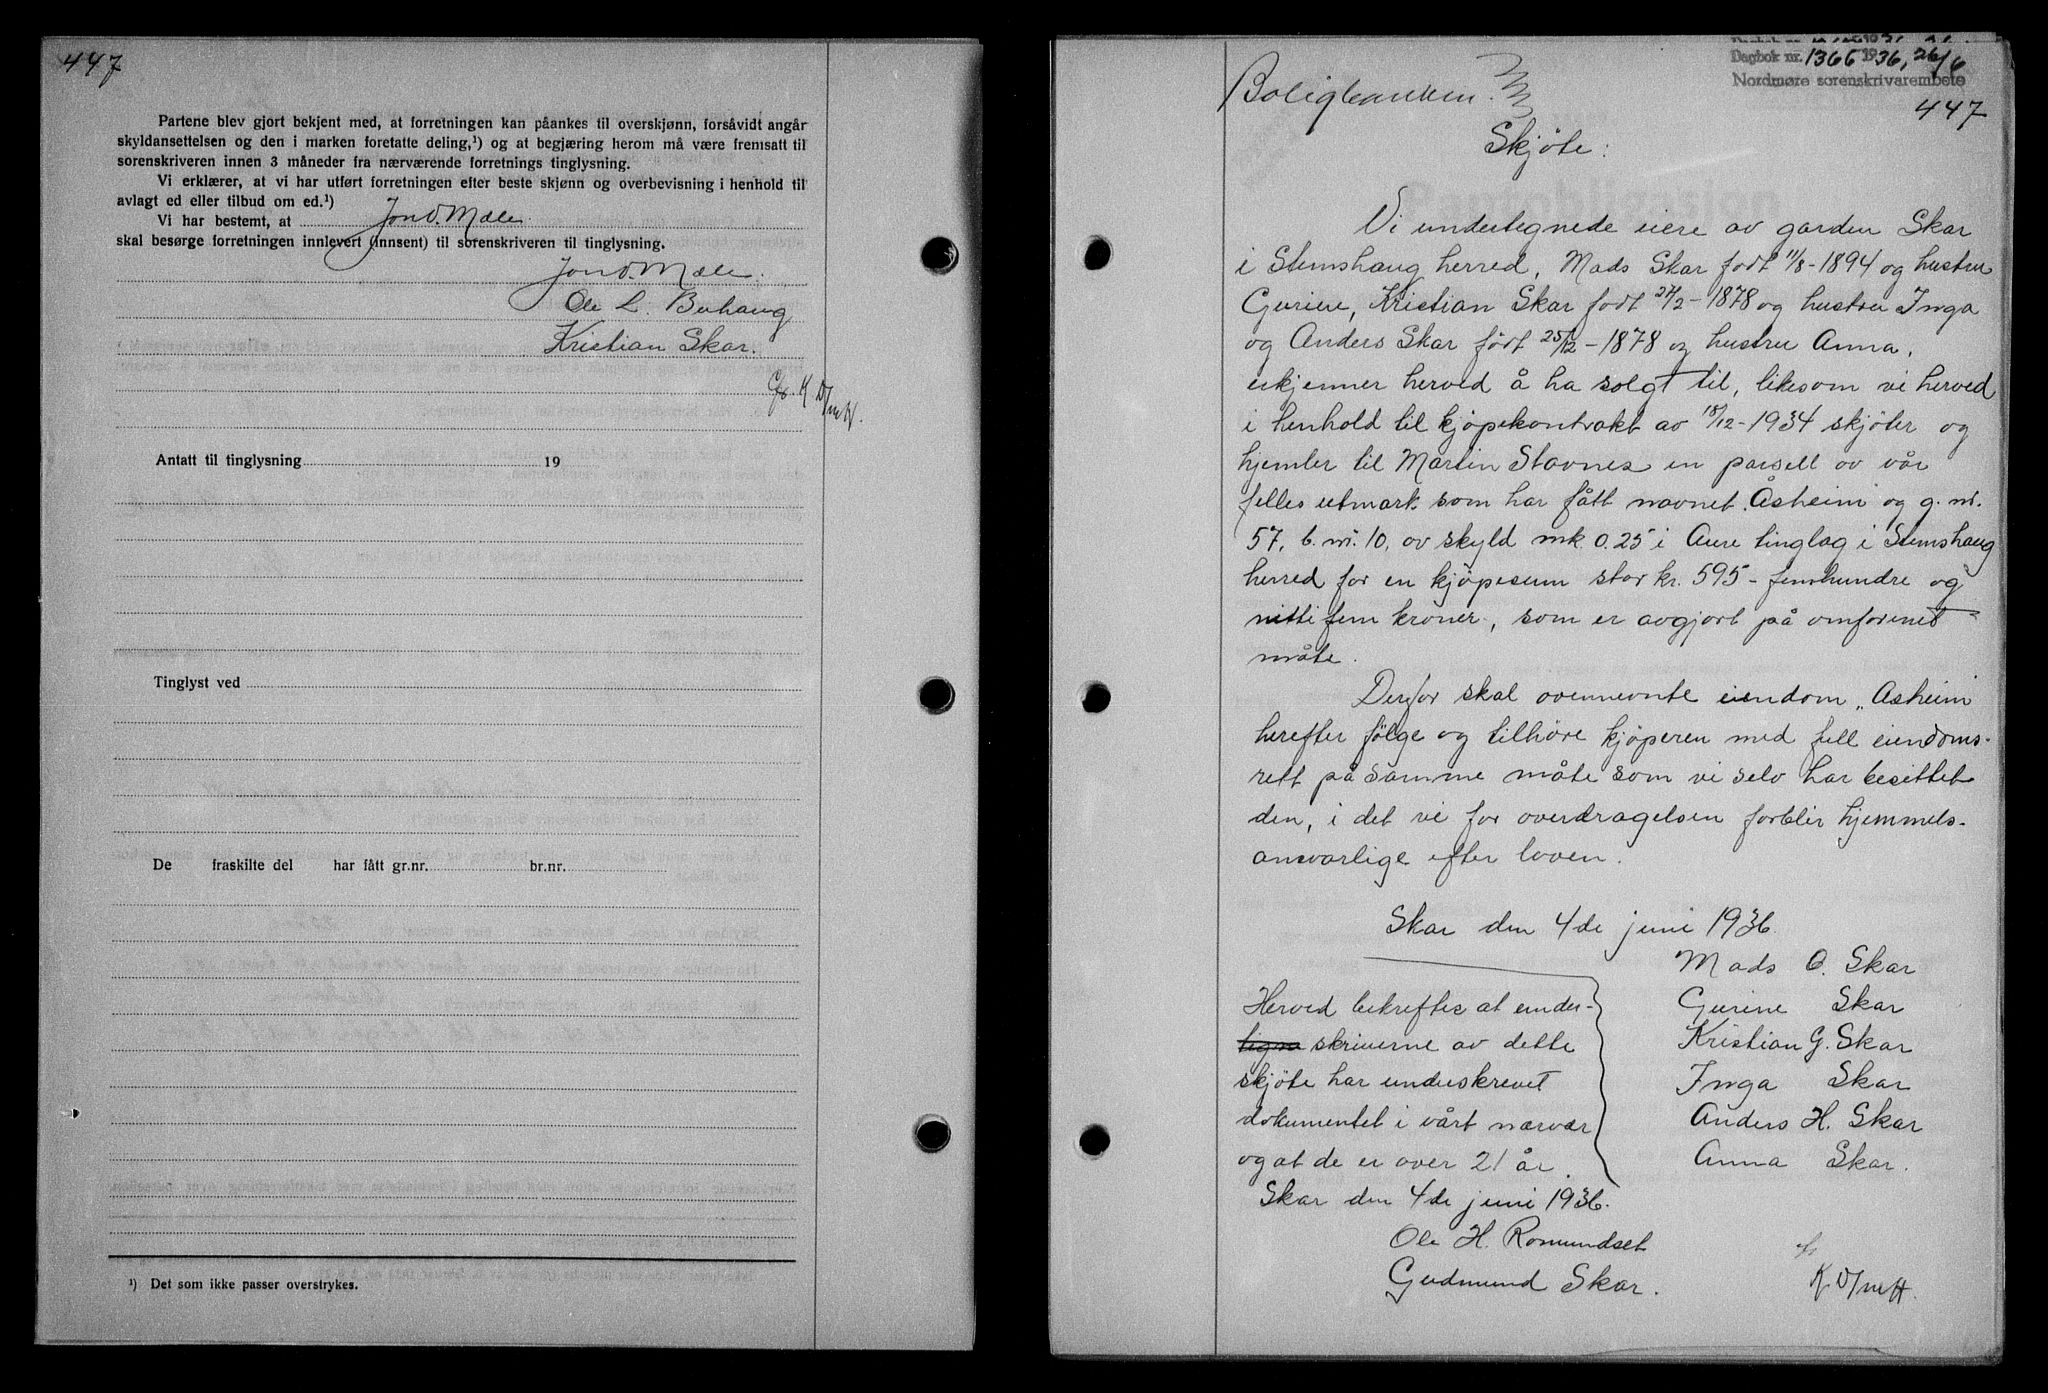 447
Partene blev gjort bekjent med, at forretningen kan påankes til overskjønn, forsåvidt angår
skyldansettelsen og den i marken foretatte deling,¹) og at begjæring herom må være fremsatt til
sorenskriveren innen 3 måneder fra nærværende forretnings tinglysning.
Vi erklærer, at vi har utført forretningen efter beste skjønn og overbevisning i henhold til
avlagt ed eller tilbud om ed.¹)
Vi har bestemt, at Jon O. Mæle
skal besørge forretningen innlevert (innsent) til sorenskriveren til tinglysning.
Jon O. Mæle.
Ole L. Buhaug
Kristian Skar.
Antatt til tinglysning 19
Tinglyst ved
De fraskilte del har fått gr.nr. br.nr.
¹) Det som ikke passer overstrykes.
Dagbok nr. 1366 1936, 26/6
Nordmøre sorenskrivarembete
447
Boligbanken.
Skjøte:
Vi undertegnede eiere av garden Skar
i Stemshaug herred, Mads Skar født 11/8-1894 og hustru
Gurine, Kristian Skar født 27/2-1878 og hustru Inga
og Anders Skar født 25/12-1878 og hustru Anna,
erkjenner herved å ha solgt til, likesom vi herved
i henhold til kjøpekontrakt av 18/12-1934 skjøter og
hjemler til Martin Stavnes en parsell av vår
felles utmark som har fått navnet „Åsheim" og g. nr.
57, b. nr. 10, av skyld mk. 0.25 i Aure tinglag i Stemshaug
herred for en kjøpesum stor kr. 595 - femhundre og
nitti fem kroner, som er avgjort på omforenet
måte.
Derfor skal ovennevnte eiendom „Åsheim
herefter følge og tilhøre kjøperen med full eiendoms-
rett på samme måte som vi selv har besittet
den, i det vi for overdragelsen forblir hjemmels-
ansvarlige efter loven.
Skar den 4de juni 1936.
Mads O. Skar
Gurine Skar
Kristian G. Skar
Inga Skar
Anders H. Skar
Anna Skar.
Herved bekreftes at under-
tegne skriverne av dette
skjøte har underskrevet
dokumentet i vårt nærvær
og at de er over 21 år.
Skar den 4de juni 1936.
Ole H. Romundset
Gudmund Skar.